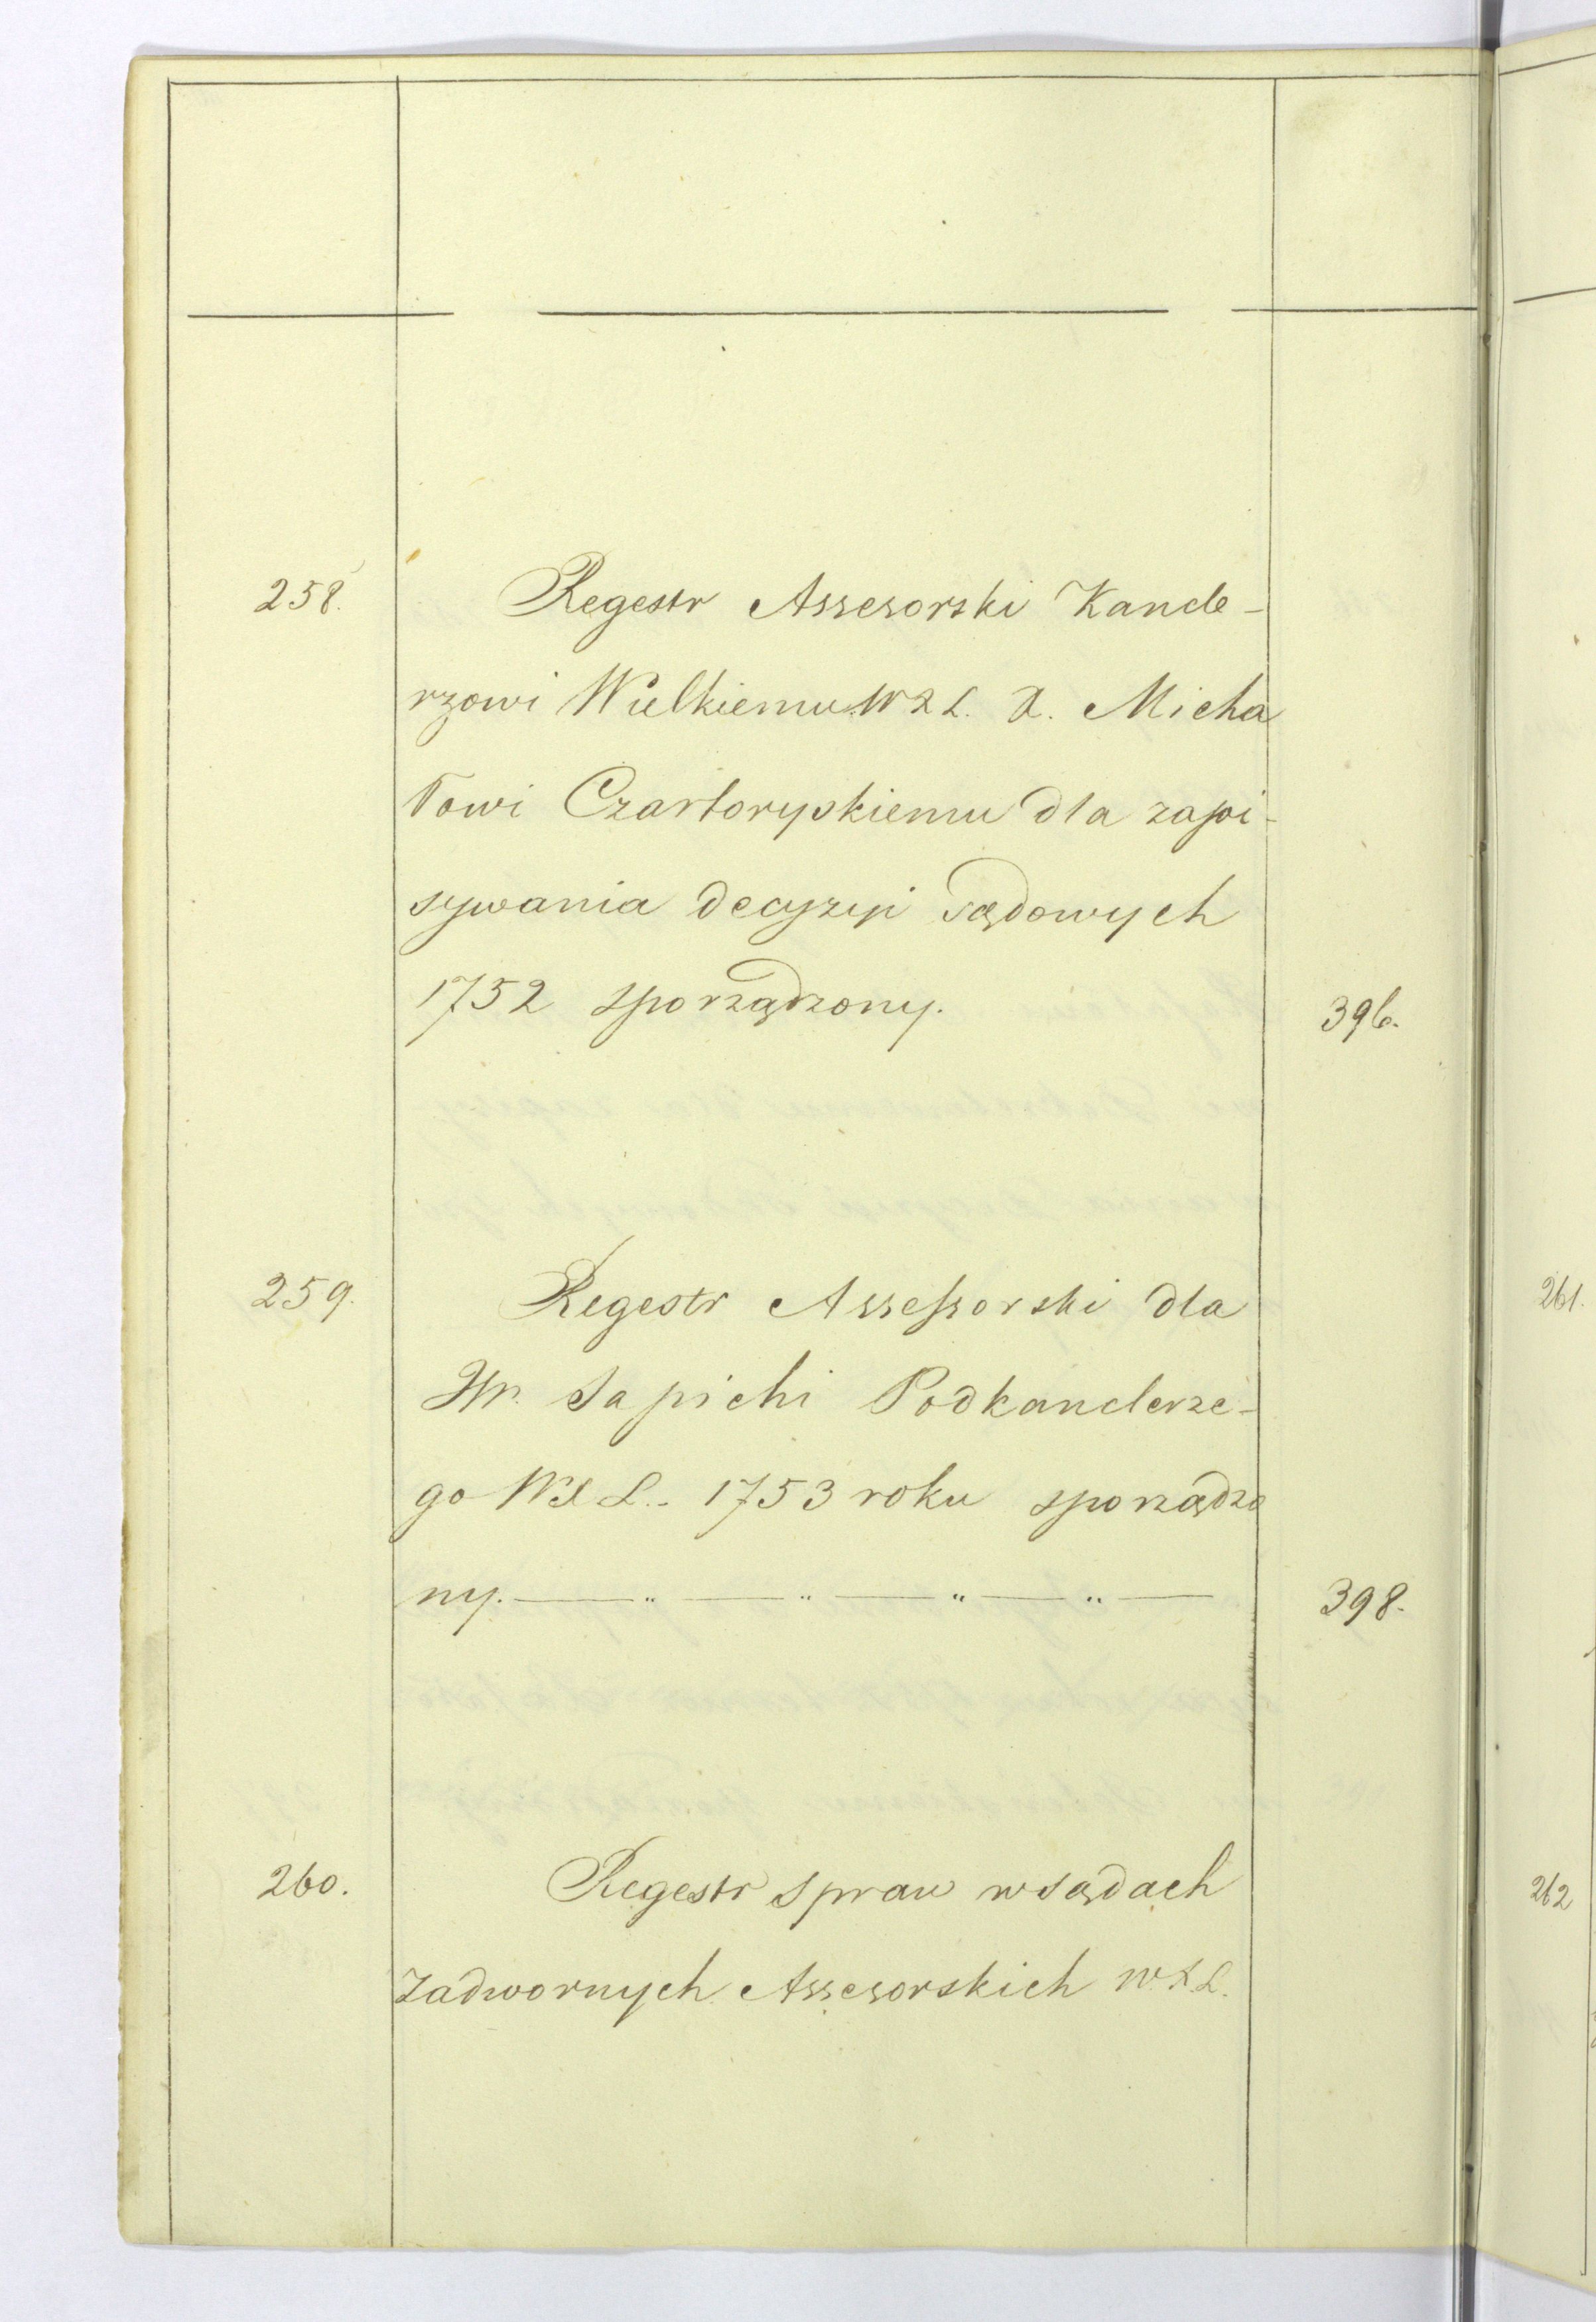 258. Regestr Assesorski Kancle-
rzowi Wielkiemu W X L. X. Micha
łowi Czartoryskiemu dla zapi-
sywania decyzyi sądowych
1752 sporządzony. 396.
259. Regestr Assessorski dla
Hr. Sapiehi Podkanclerze-
go W X L.. 1753 roku sporządzo
ny. — „ — „ — „ — „ — 398.
260. Regestr spraw w sądach
Zadwornych Assesorskich W. X. L.
261.
262